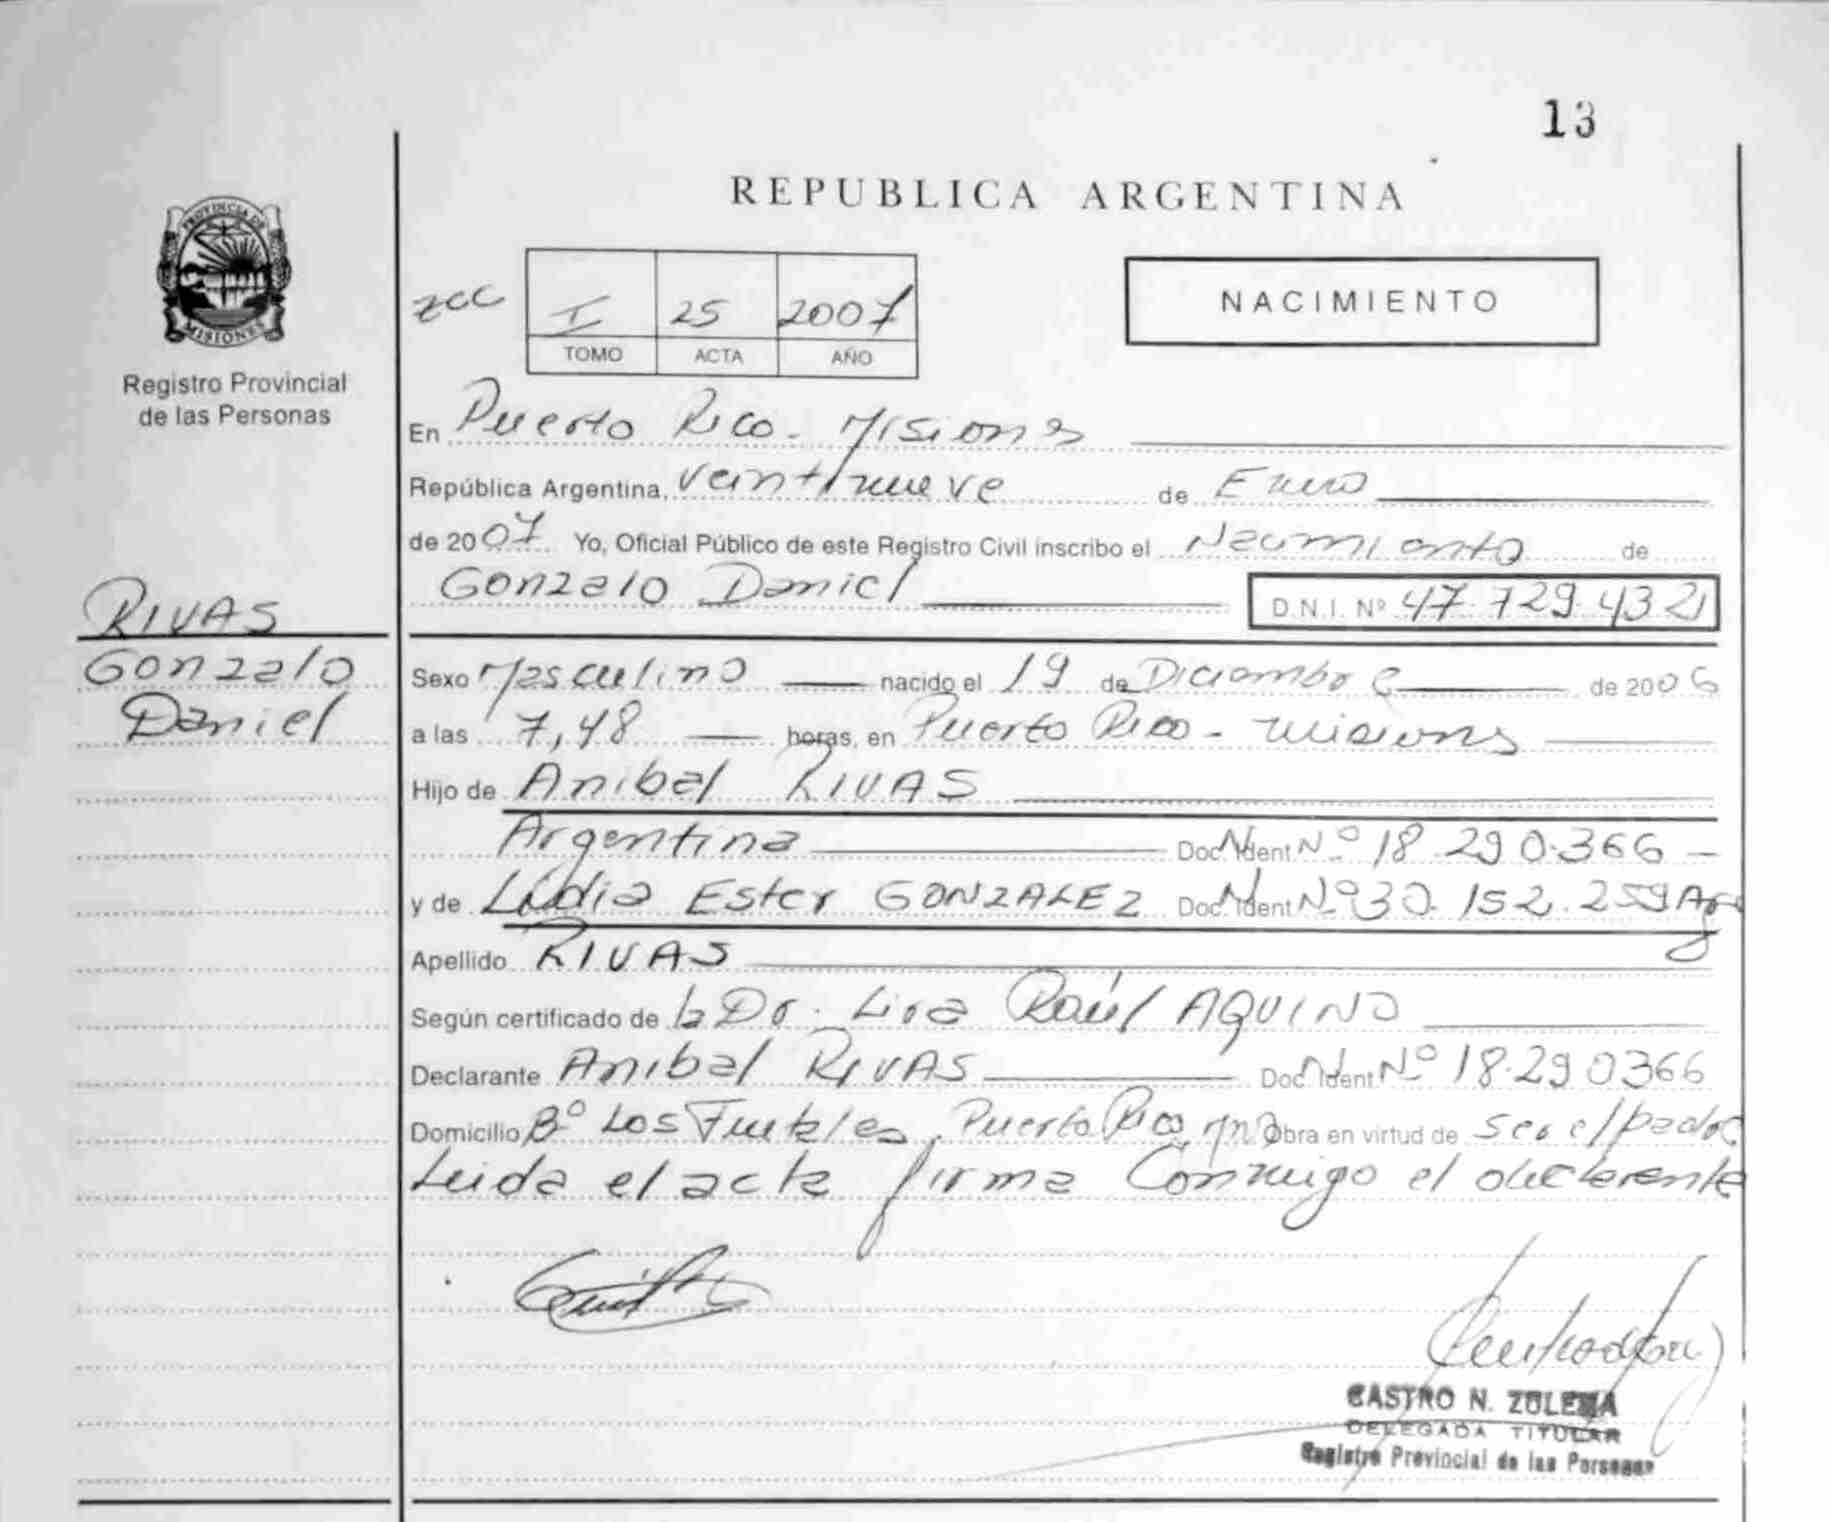 13
REPUBLICA ARGENTINA
PROVINCIA DE
MISIONES
Registro Provincial
de las Personas
zcc I 25 2007
TOMO ACTA AÑO
NACIMIENTO
En Puerto Rico - Misiones
República Argentina, Veintinueve de Enero
de 2007 Yo, Oficial Público de este Registro Civil inscribo el Nacimiento de
Gonzalo Daniel D.N.I. Nº 47.729.432
RIVAS
Gonzalo
Daniel
Sexo Masculino nacido el 19 de Diciembre de 2006
a las 7,48 horas, en Puerto Rico - Misiones
Hijo de Anibal RIVAS
Argentina Doc. Ident. Nº 18.290.366 -
y de Lidia Ester GONZALEZ Doc. Ident. Nº 30.152.259 Arg
Apellido RIVAS
Según certificado de la Dr. Raúl AQUINO
Declarante Anibal RIVAS Doc. Ident. Nº 18.290366
Domicilio Bº Los, Puerto Rico, Mn Obra en virtud de ser el padre
Leida el acta firma Conmigo el declarante
CASTRO N. ZULEMA
DELEGADA TITULAR
Registro Provincial de las Personas